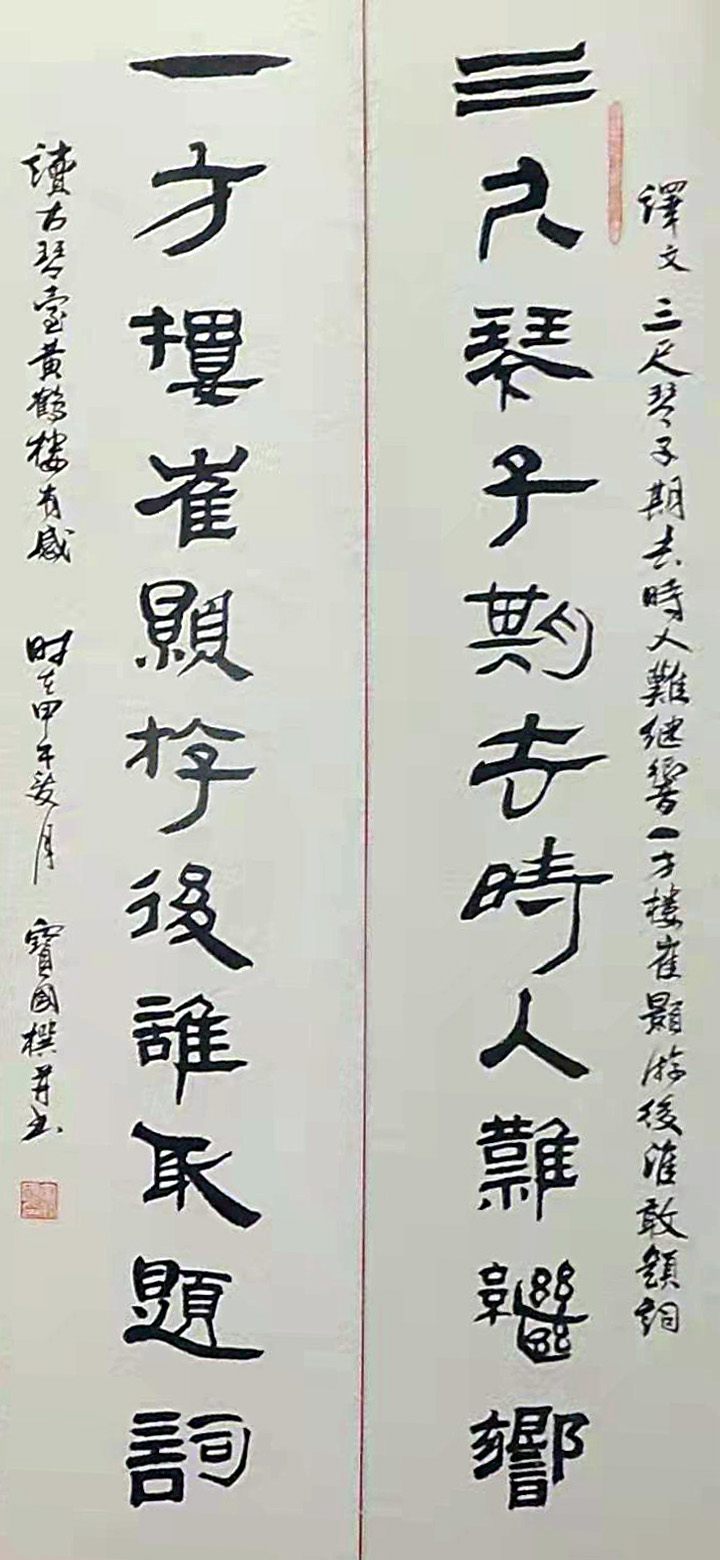 譯文 三尺琴子期去時人難继響一方樓崔顥游後誰敢題詞
三尺琴子期去時人難繼響
一方樓崔顥游後誰敢題詞
讀古琴臺黄鶴樓有感 时在甲午夏月 寶國撰并书